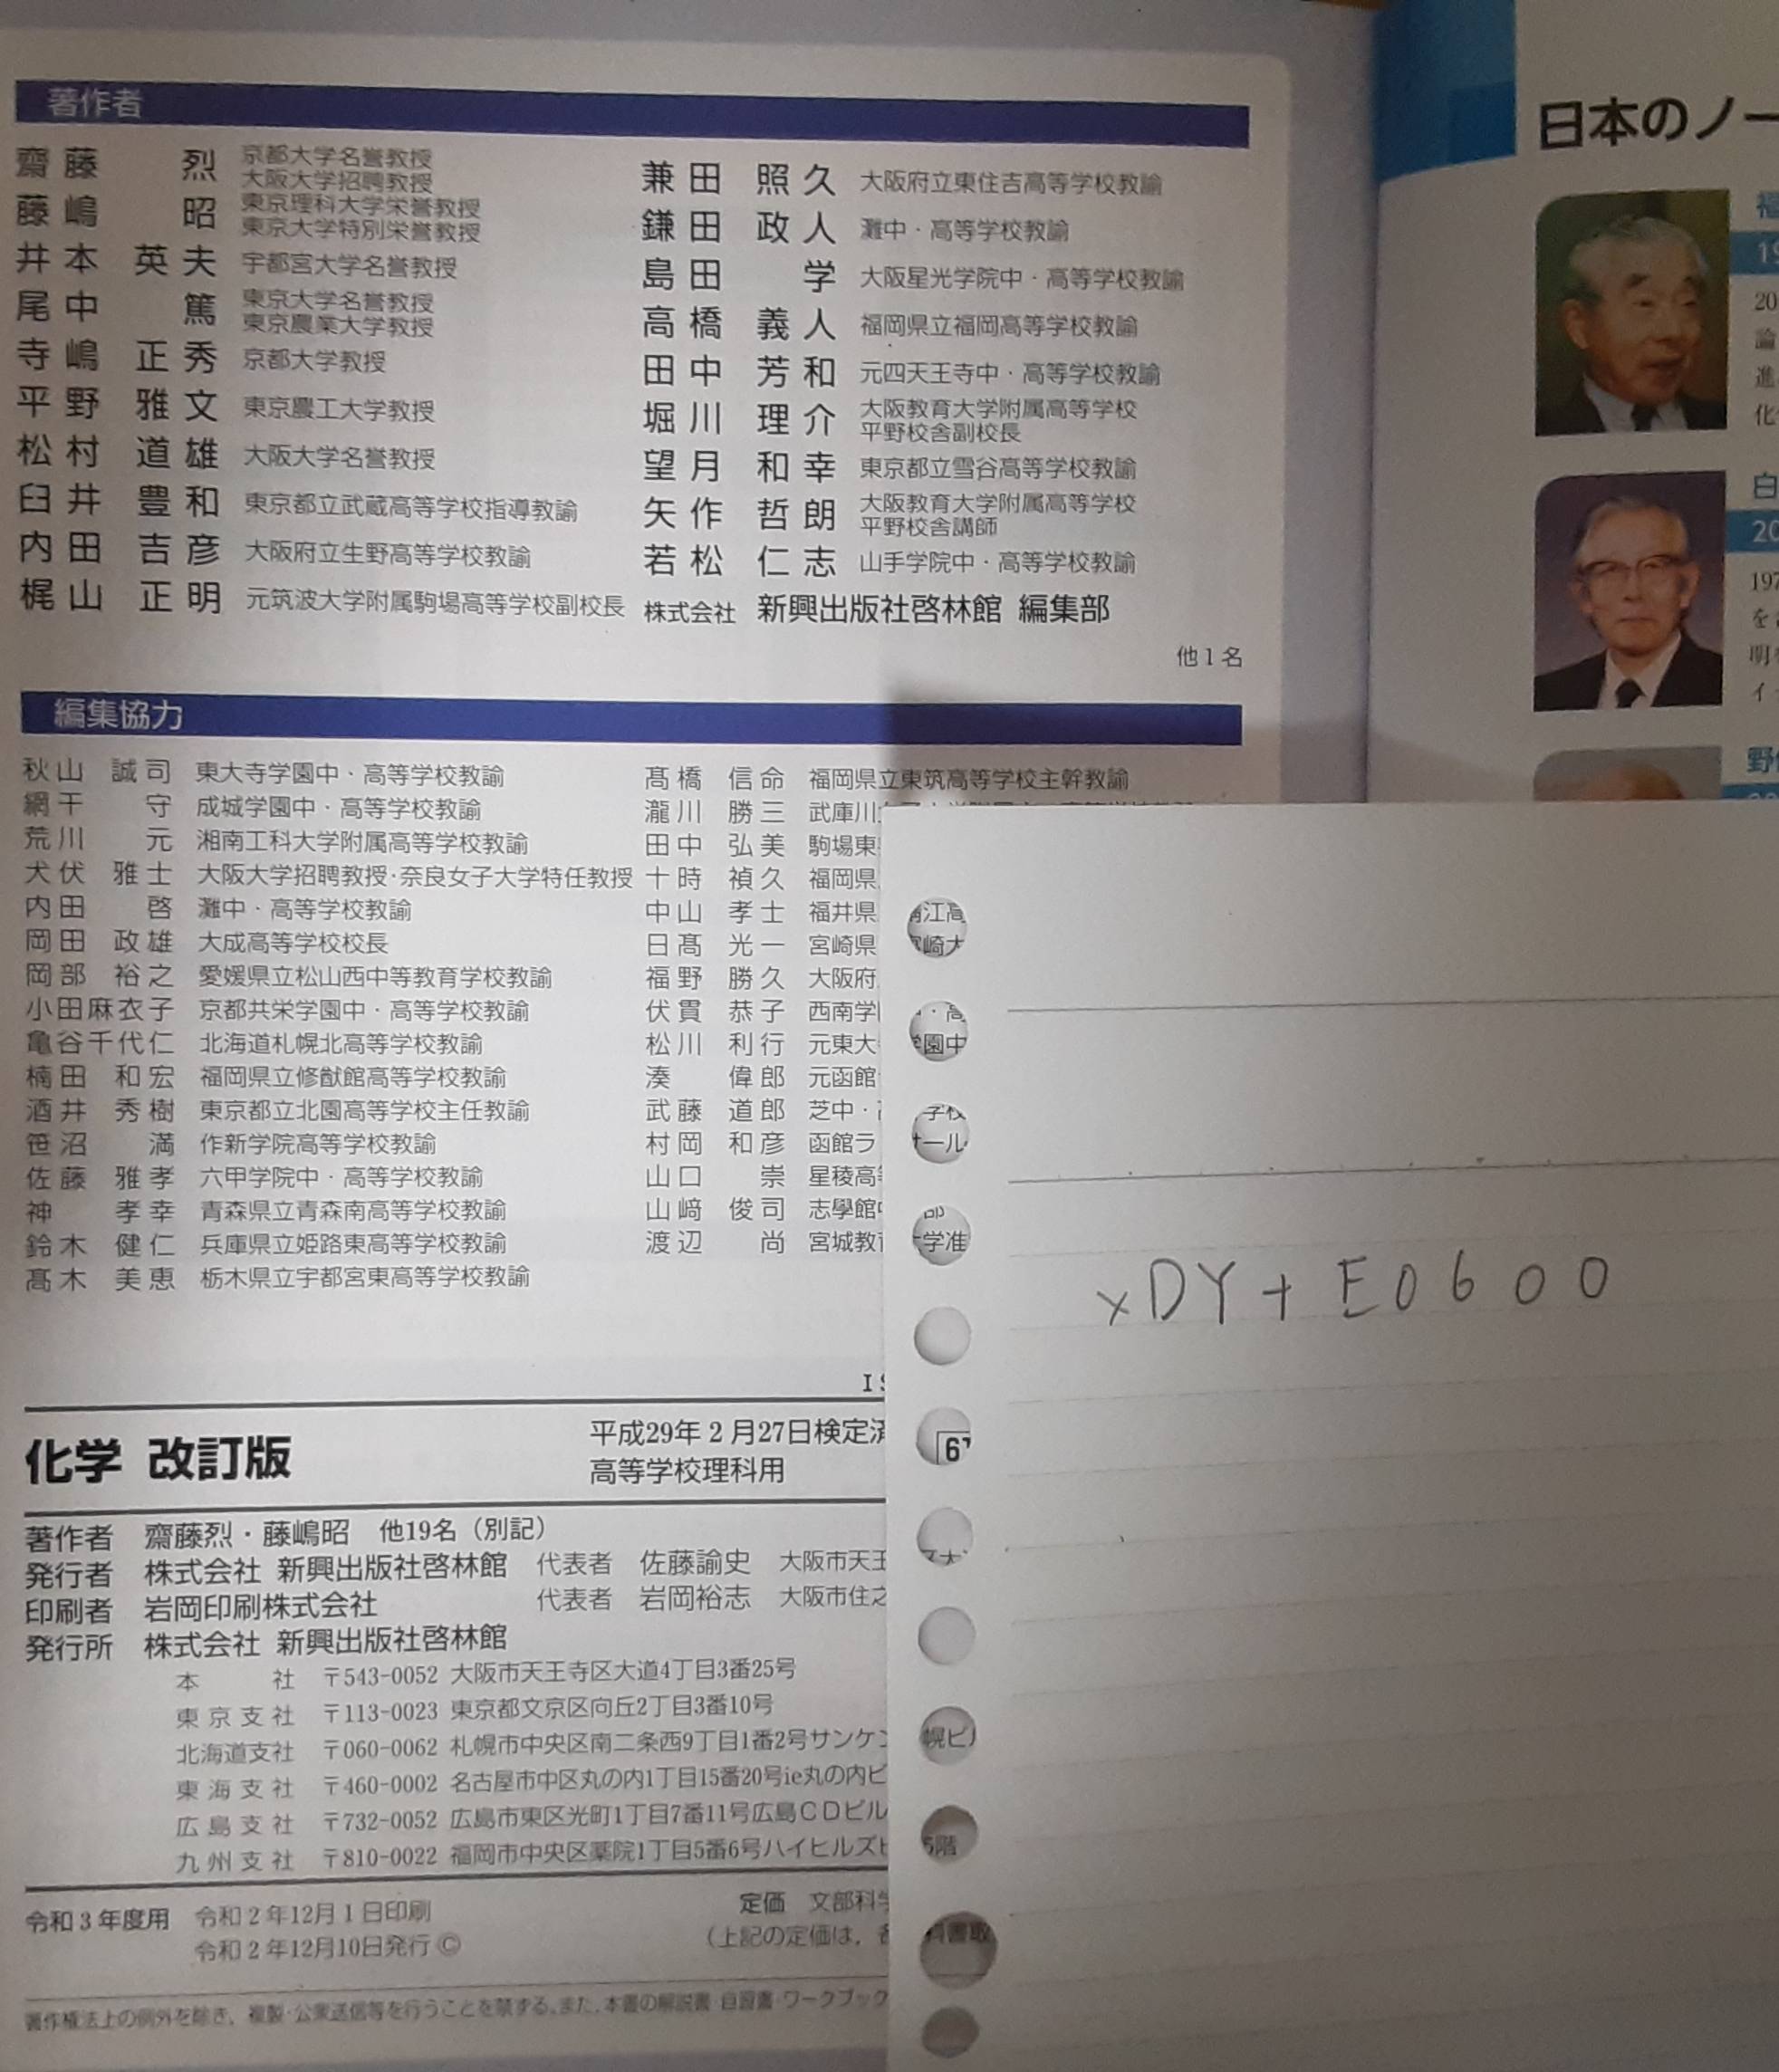 著作者
齋藤 烈 京都大学名誉教授 大阪大学招聘教授
藤嶋 昭 東京理科大学栄誉教授 東京大学特別栄誉教授
井本 英夫 宇都宮大学名誉教授
尾中 篤 東京大学名誉教授 東京農業大学教授
寺嶋 正秀 京都大学教授
平野 雅文 東京農工大学教授
松村 道雄 大阪大学名誉教授
臼井 豊和 東京都立武蔵高等学校指導教諭
内田 吉彦 大阪府立生野高等学校教諭
梶山 正明 元筑波大学附属駒場高等学校副校長
兼田 照久 大阪府立東住吉高等学校教諭
鎌田 政人 灘中・高等学校教諭
島田 学 大阪星光学院中・高等学校教諭
高橋 義人 福岡県立福岡高等学校教諭
田中 芳和 元四天王寺中・高等学校教諭
堀川 理介 大阪教育大学附属高等学校 平野校舎副校長
望月 和幸 東京都立雪谷高等学校教諭
矢作 哲朗 大阪教育大学附属高等学校 平野校舎講師
若松 仁志 山手学院中・高等学校教諭
株式会社 新興出版社啓林館 編集部
他1名
編集協力
秋山 誠司 東大寺学園中・高等学校教諭
網干 守 成城学園中・高等学校教諭
荒川 元 湘南工科大学附属高等学校教諭
犬伏 雅士 大阪大学招聘教授・奈良女子大学特任教授
内田 啓 灘中・高等学校教諭
岡田 政雄 大成高等学校校長
岡部 裕之 愛媛県立松山西中等教育学校教諭
小田麻衣子 京都共栄学園中・高等学校教諭
亀谷千代仁 北海道札幌北高等学校教諭
楠田 和宏 福岡県立修猷館高等学校教諭
酒井 秀樹 東京都立北園高等学校主任教諭
笹沼 満 作新学院高等学校教諭
佐藤 雅孝 六甲学院中・高等学校教諭
神 孝幸 青森県立青森南高等学校教諭
鈴木 健仁 兵庫県立姫路東高等学校教諭
髙木 美恵 栃木県立宇都宮東高等学校教諭
髙橋 信命 福岡県立東筑高等学校主幹教諭
瀧川 勝三 武庫川
田中 弘美 駒場東
十時 禎久 福岡県
中山 孝士 福井県
日髙 光一 宮崎県
福野 勝久 大阪府
伏貫 恭子 西南学
松川 利行 元東大
湊 偉郎 元函館
武藤 道郎 芝中・
村岡 和彦 函館ラ
山口 崇 星稜高
山﨑 俊司 志學館
渡辺 尚 宮城教
化学 改訂版
平成29年2月27日検定済
高等学校理科用
著作者 齋藤烈・藤嶋昭 他19名（別記）
発行者 株式会社 新興出版社啓林館 代表者 佐藤諭史 大阪市天王
印刷者 岩岡印刷株式会社 代表者 岩岡裕志 大阪市住之
発行所 株式会社 新興出版社啓林館
本社 〒543-0052 大阪市天王寺区大道4丁目3番25号
東京支社 〒113-0023 東京都文京区向丘2丁目3番10号
北海道支社 〒060-0062 札幌市中央区南二条西9丁目1番2号サンケン
東海支社 〒460-0002 名古屋市中区丸の内1丁目15番20号ie丸の内ビ
広島支社 〒732-0052 広島市東区光町1丁目7番11号広島CDビル
九州支社 〒810-0022 福岡市中央区薬院1丁目5番6号ハイヒルズビ
5階
令和3年度用 令和2年12月1日印刷
令和2年12月10日発行 ©
定価 文部科学
（上記の定価は，各
著作権法上の例外を除き，複製・公衆送信等を行うことを禁ずる。また，本書の解説書・自習書・ワークブック
日本のノー
xDY+E0600